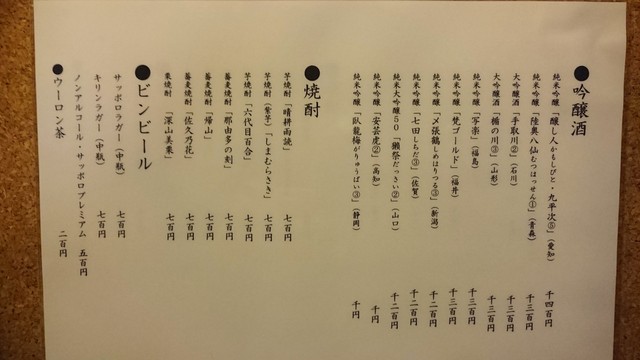 ●吟醸酒
純米吟醸「醸し人かもしびと・九平次⑤」(愛知) 千四百円
純米吟醸「陸奥八仙むつはっせん①」(青森) 千三百円
大吟醸酒「手取川②」(石川) 千三百円
大吟醸酒「楯の川③」(山形) 千三百円
純米吟醸「写楽」(福島) 千三百円
純米吟醸「梵ゴールド」(福井) 千三百円
純米吟醸「〆張鶴しめはりつる③」(新潟) 千二百円
純米吟醸「七田しちだ③」(佐賀) 千二百円
純米大吟醸50「獺祭だっさい②」(山口) 千二百円
純米吟醸「安芸虎②」(高知) 千円
純米吟醸「臥龍梅がりゅうばい③」(静岡) 千円
●焼酎
芋焼酎「晴耕雨読」 七百円
芋焼酎(紫芋)「しまむらさき」 七百円
芋焼酎「六代目百合」 七百円
蕎麦焼酎「那由多の刻」 七百円
蕎麦焼酎「帰山」 七百円
蕎麦焼酎「佐久乃花」 七百円
栗焼酎「深山美栗」 七百円
●ビンビール
サッポロラガー(中瓶) 七百円
キリンラガー(中瓶) 七百円
ノンアルコール・サッポロプレミアム 五百円
●ウーロン茶 二百円